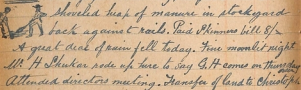 shoveled heap of manure in stockyard
back against rails. Paid Skinners bill 8/-
A great deal of rain fell today. Fine moonlit night
Mr. H. Shukar rode up here to say G.H comes on Thursday
Attended directors meeting. Transfer of land to Christoph